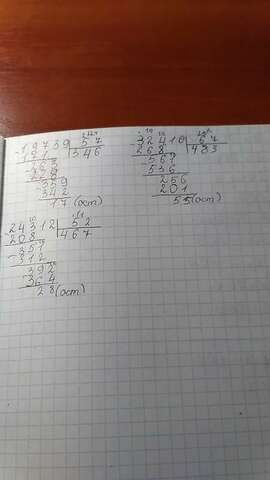 19739 57
171 346
263
228
359
342
17 (ост)
32416 67
268 483
561
536
256
201
55 (ост)
24312 52
208 467
351
312
392
364
28 (ост)